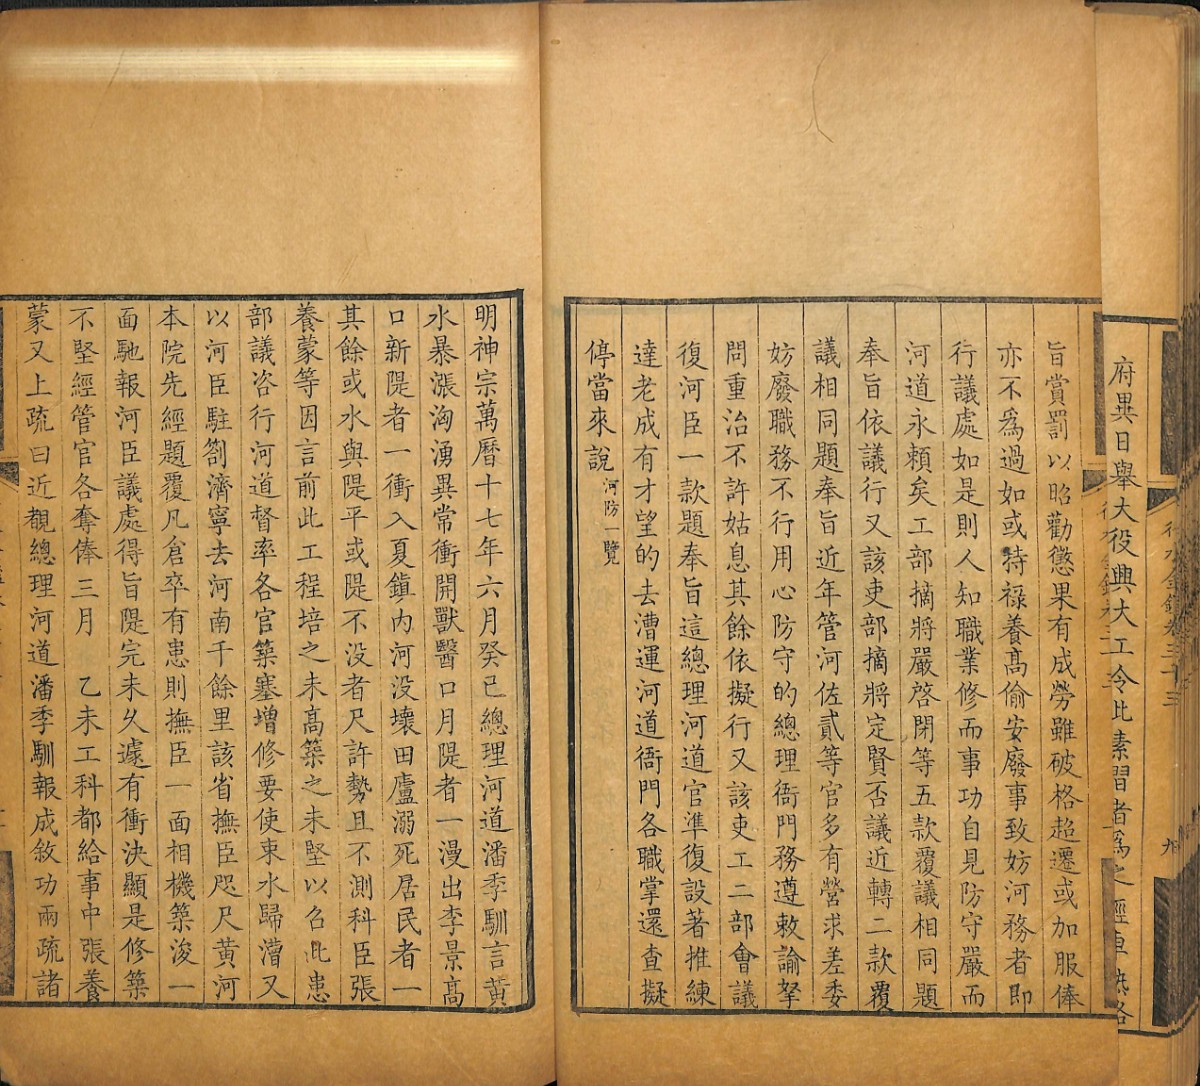 府異日舉大役興大工令比素習者為之經
旨賞罰以昭勸懲果有成勞雖破格超遷或加服俸
亦不為過如或特祿養高偷安廢事致妨河務者即
行議處如是則人知職業修而事功自見防守嚴而
河道永賴矣工部摘將嚴啓閉等五款覆議相同題
奉旨依議行又該吏部摘將定賢否議近轉二款覆
議相同題奉旨近年管河佐貳等官多有營求差委
妨廢職務不行用心防守的總理衙門務遵敕諭拏
問重治不許姑息其餘依擬行又該吏工二部會議
復河臣一款題奉旨這總理河道官準復設著推練
達老成有才望的去漕運河道衙門各職掌還查擬
停當來說河防一覽
明神宗萬曆十七年六月癸巳總理河道潘季馴言黃
水暴漲洶湧異常衝開獸醫口月隄者一漫出李景高
口新隄者一衝入夏鎮內河没壞田廬溺死居民者一
其餘或水與隄平或隄不没者尺許勢且不測科臣張
養蒙等因言前此工程培之未高築之未堅以召此患
部議咨行河道督率各官築塞增修要使束水歸漕又
以河臣駐劄濟寧去河南千餘里該省撫臣咫尺黃河
本院先經題覆凡倉卒有患則撫臣一面相機築浚一
面馳報河臣議處得旨隄完未久遽有衝決顯是修築
不堅經管官各奪俸三月　乙未工科都給事中張養
蒙又上疏曰近覩總理河道潘季馴報成敘功兩疏諸